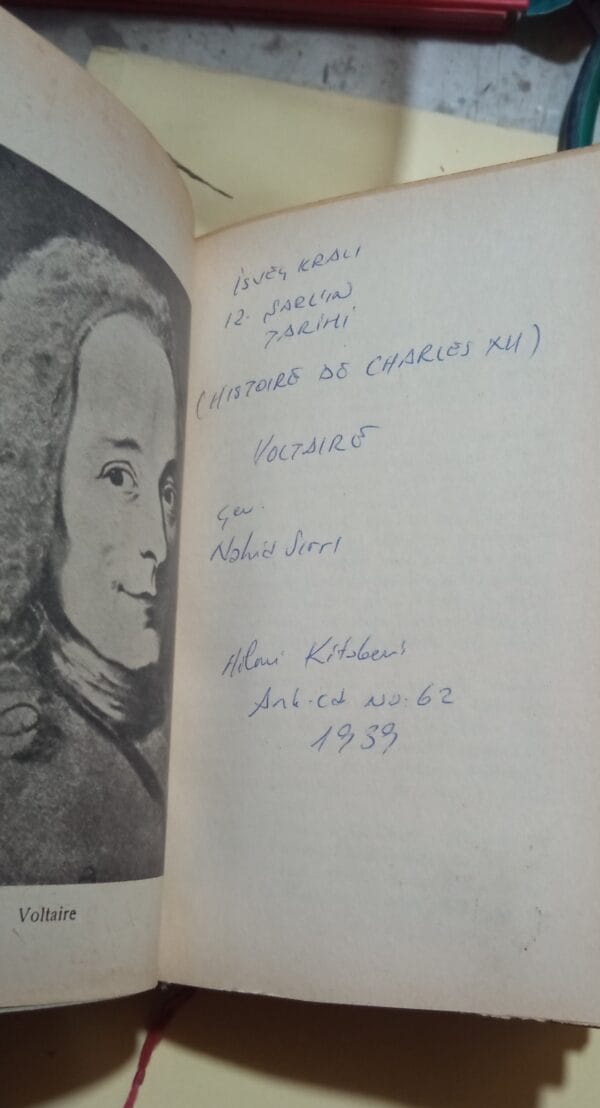 Voltaire
İSVEÇ KRALI
12. ŞARL'IN
TARİHİ
(HISTOIRE DE CHARLES XII)
VOLTAIRE
Çev.
Nahid Sırrı
Hilmi Kitabevi
Ank. cd No. 62
1939